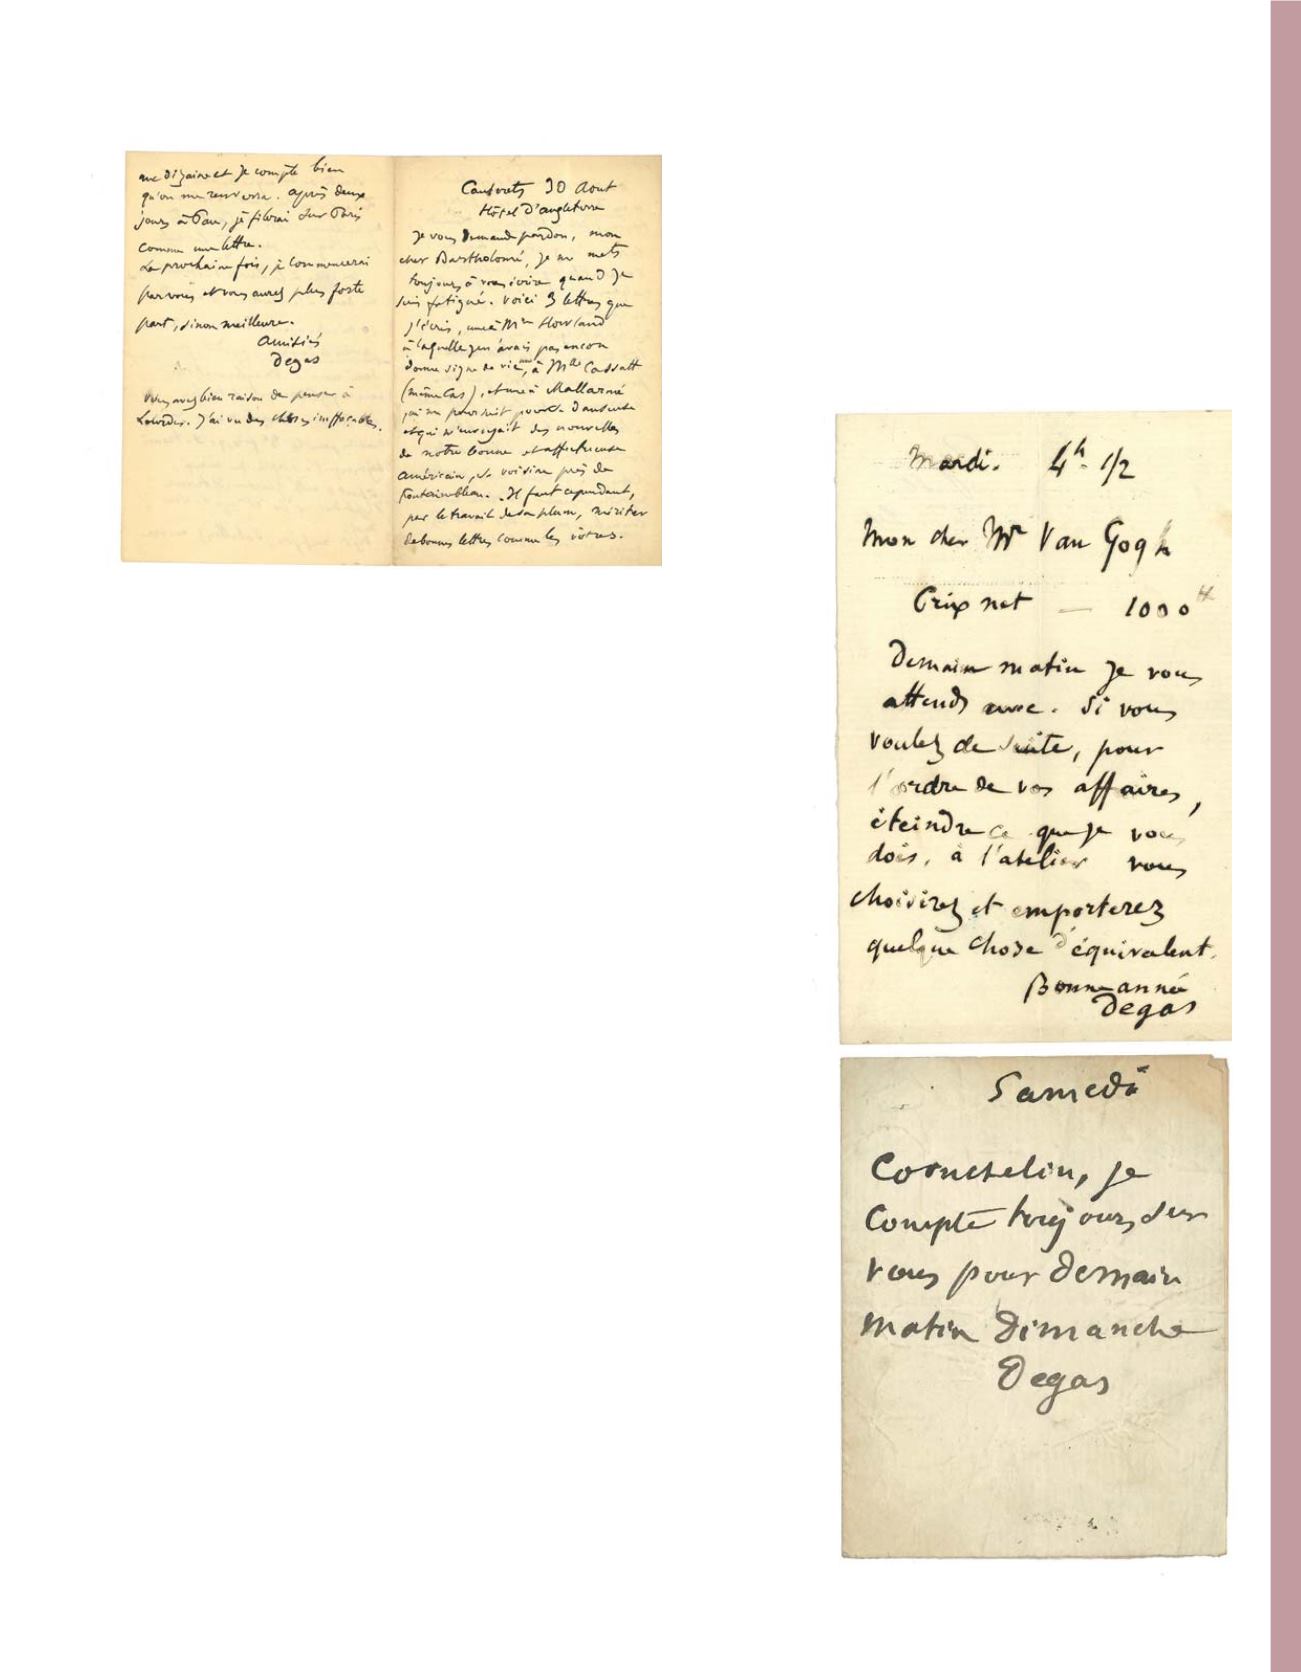 une dizaine et je compte bien
qu'on me renverra. Après deux
jours à Pau, je filerai sur Paris
comme une lettre.
La prochaine fois, je commencerai
par vous et vous aurez plus forte
part, sinon meilleure.
Amitiés
Degas
Vous avez bien raison de penser à
Lourdes. J'ai vu des choses ineffaçables.
Cauterets 30 Aout
Hôtel d'angleterre
Je vous demande pardon, mon
cher Bartholomé, je me mets
toujours à vous écrire quand je
suis fatigué. Voici 3 lettres que
j'écris, une à Mme Howland
à laquelle je n'avais pas encore
donné signe de vie, à Mlle Cassatt
(même cas), et une à Mallarmé
qui me poursuit pour
et qui m'envoyait des nouvelles
de notre bonne et affectueuse
américaine, sa voisine près de
Fontainebleau. Il faut cependant,
par le travail de sa plume, mériter
de bonnes lettres comme les vôtres.
Mardi. 4h. 1/2
Mon cher Mr Van Gogh
Prix net — 1000 ff
Demain matin je vous
attends avec. Si vous
voulez de suite, pour
l'ordre de vos affaires,
éteindre ce que je vous
dois, à l'atelier vous
choisirez et emporterez
quelque chose d'équivalent.
Bonne année
Degas
Samedi
Cornchelin, je
compte toujours sur
vous pour demain
matin Dimanche
Degas